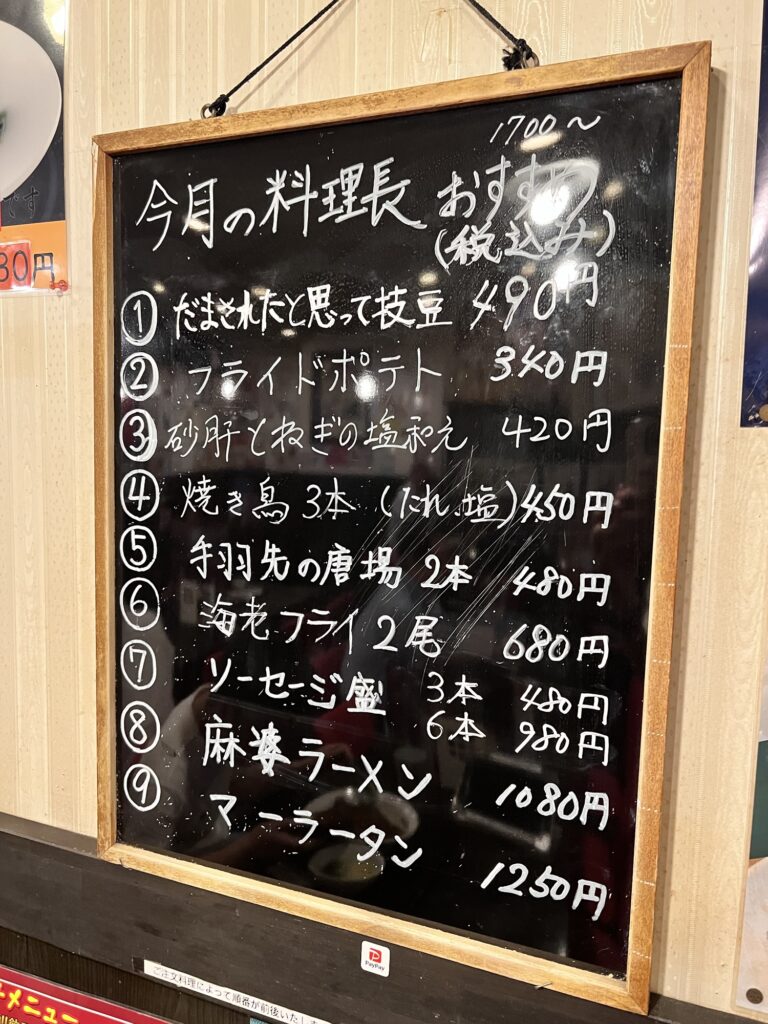 1700〜
今月の料理長 おすすめ
(税込み)
① だまされたと思って枝豆 490円
② フライドポテト 340円
③ 砂肝とねぎの塩和え 420円
④ 焼き鳥 3本 (たれ.塩) 450円
⑤ 手羽先の唐場 2本 480円
⑥ 海老フライ 2尾 680円
⑦ ソーセージ盛 3本 480円
6本 980円
⑧ 麻婆ラーメン 1080円
⑨ マーラータン 1250円
です
30円
PayPay
ご注文料理によって順番が前後いたしま
メニュー